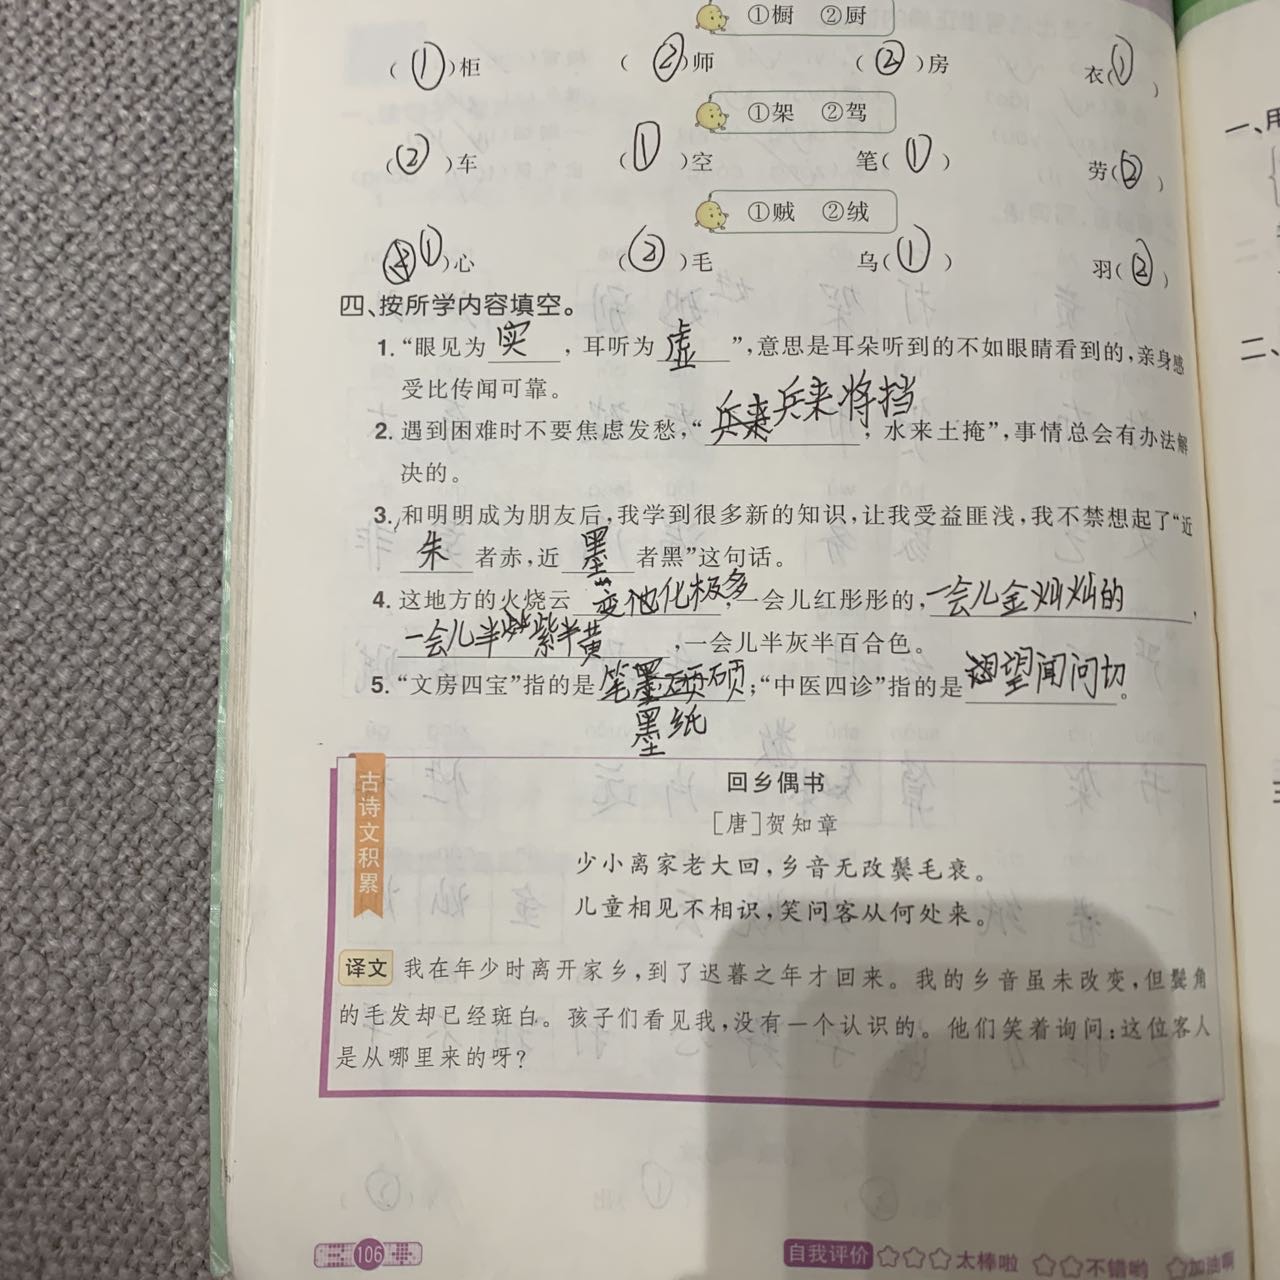 ①橱 ②厨
(①)柜 (②)师 (②)房 衣(①)
①架 ②驾
(②)车 (①)空 笔(①) 劳(②)
①贼 ②绒
(①)心 (②)毛 乌(①) 羽(②)
四、按所学内容填空。
1.“眼见为实,耳听为虚”,意思是耳朵听到的不如眼睛看到的,亲身感
受比传闻可靠。
2.遇到困难时不要焦虑发愁,“兵来兵来将挡,水来土掩”,事情总会有办法解
决的。
3.和明明成为朋友后,我学到很多新的知识,让我受益匪浅,我不禁想起了“近
朱者赤,近墨者黑”这句话。
4.这地方的火烧云变化极多,一会儿红彤彤的,一会儿金灿灿的,
一会儿半紫半黄,一会儿半灰半百合色。
5.“文房四宝”指的是笔墨硕硕;“中医四诊”指的是望闻问切。
墨纸
古诗文积累
回乡偶书
[唐]贺知章
少小离家老大回,乡音无改鬓毛衰。
儿童相见不相识,笑问客从何处来。
译文 我在年少时离开家乡,到了迟暮之年才回来。我的乡音虽未改变,但鬓角
的毛发却已经斑白。孩子们看见我,没有一个认识的。他们笑着询问:这位客人
是从哪里来的呀?
106
自我评价 ☆☆☆太棒啦 ☆☆不错哟 ☆加油啊
一、用
二、